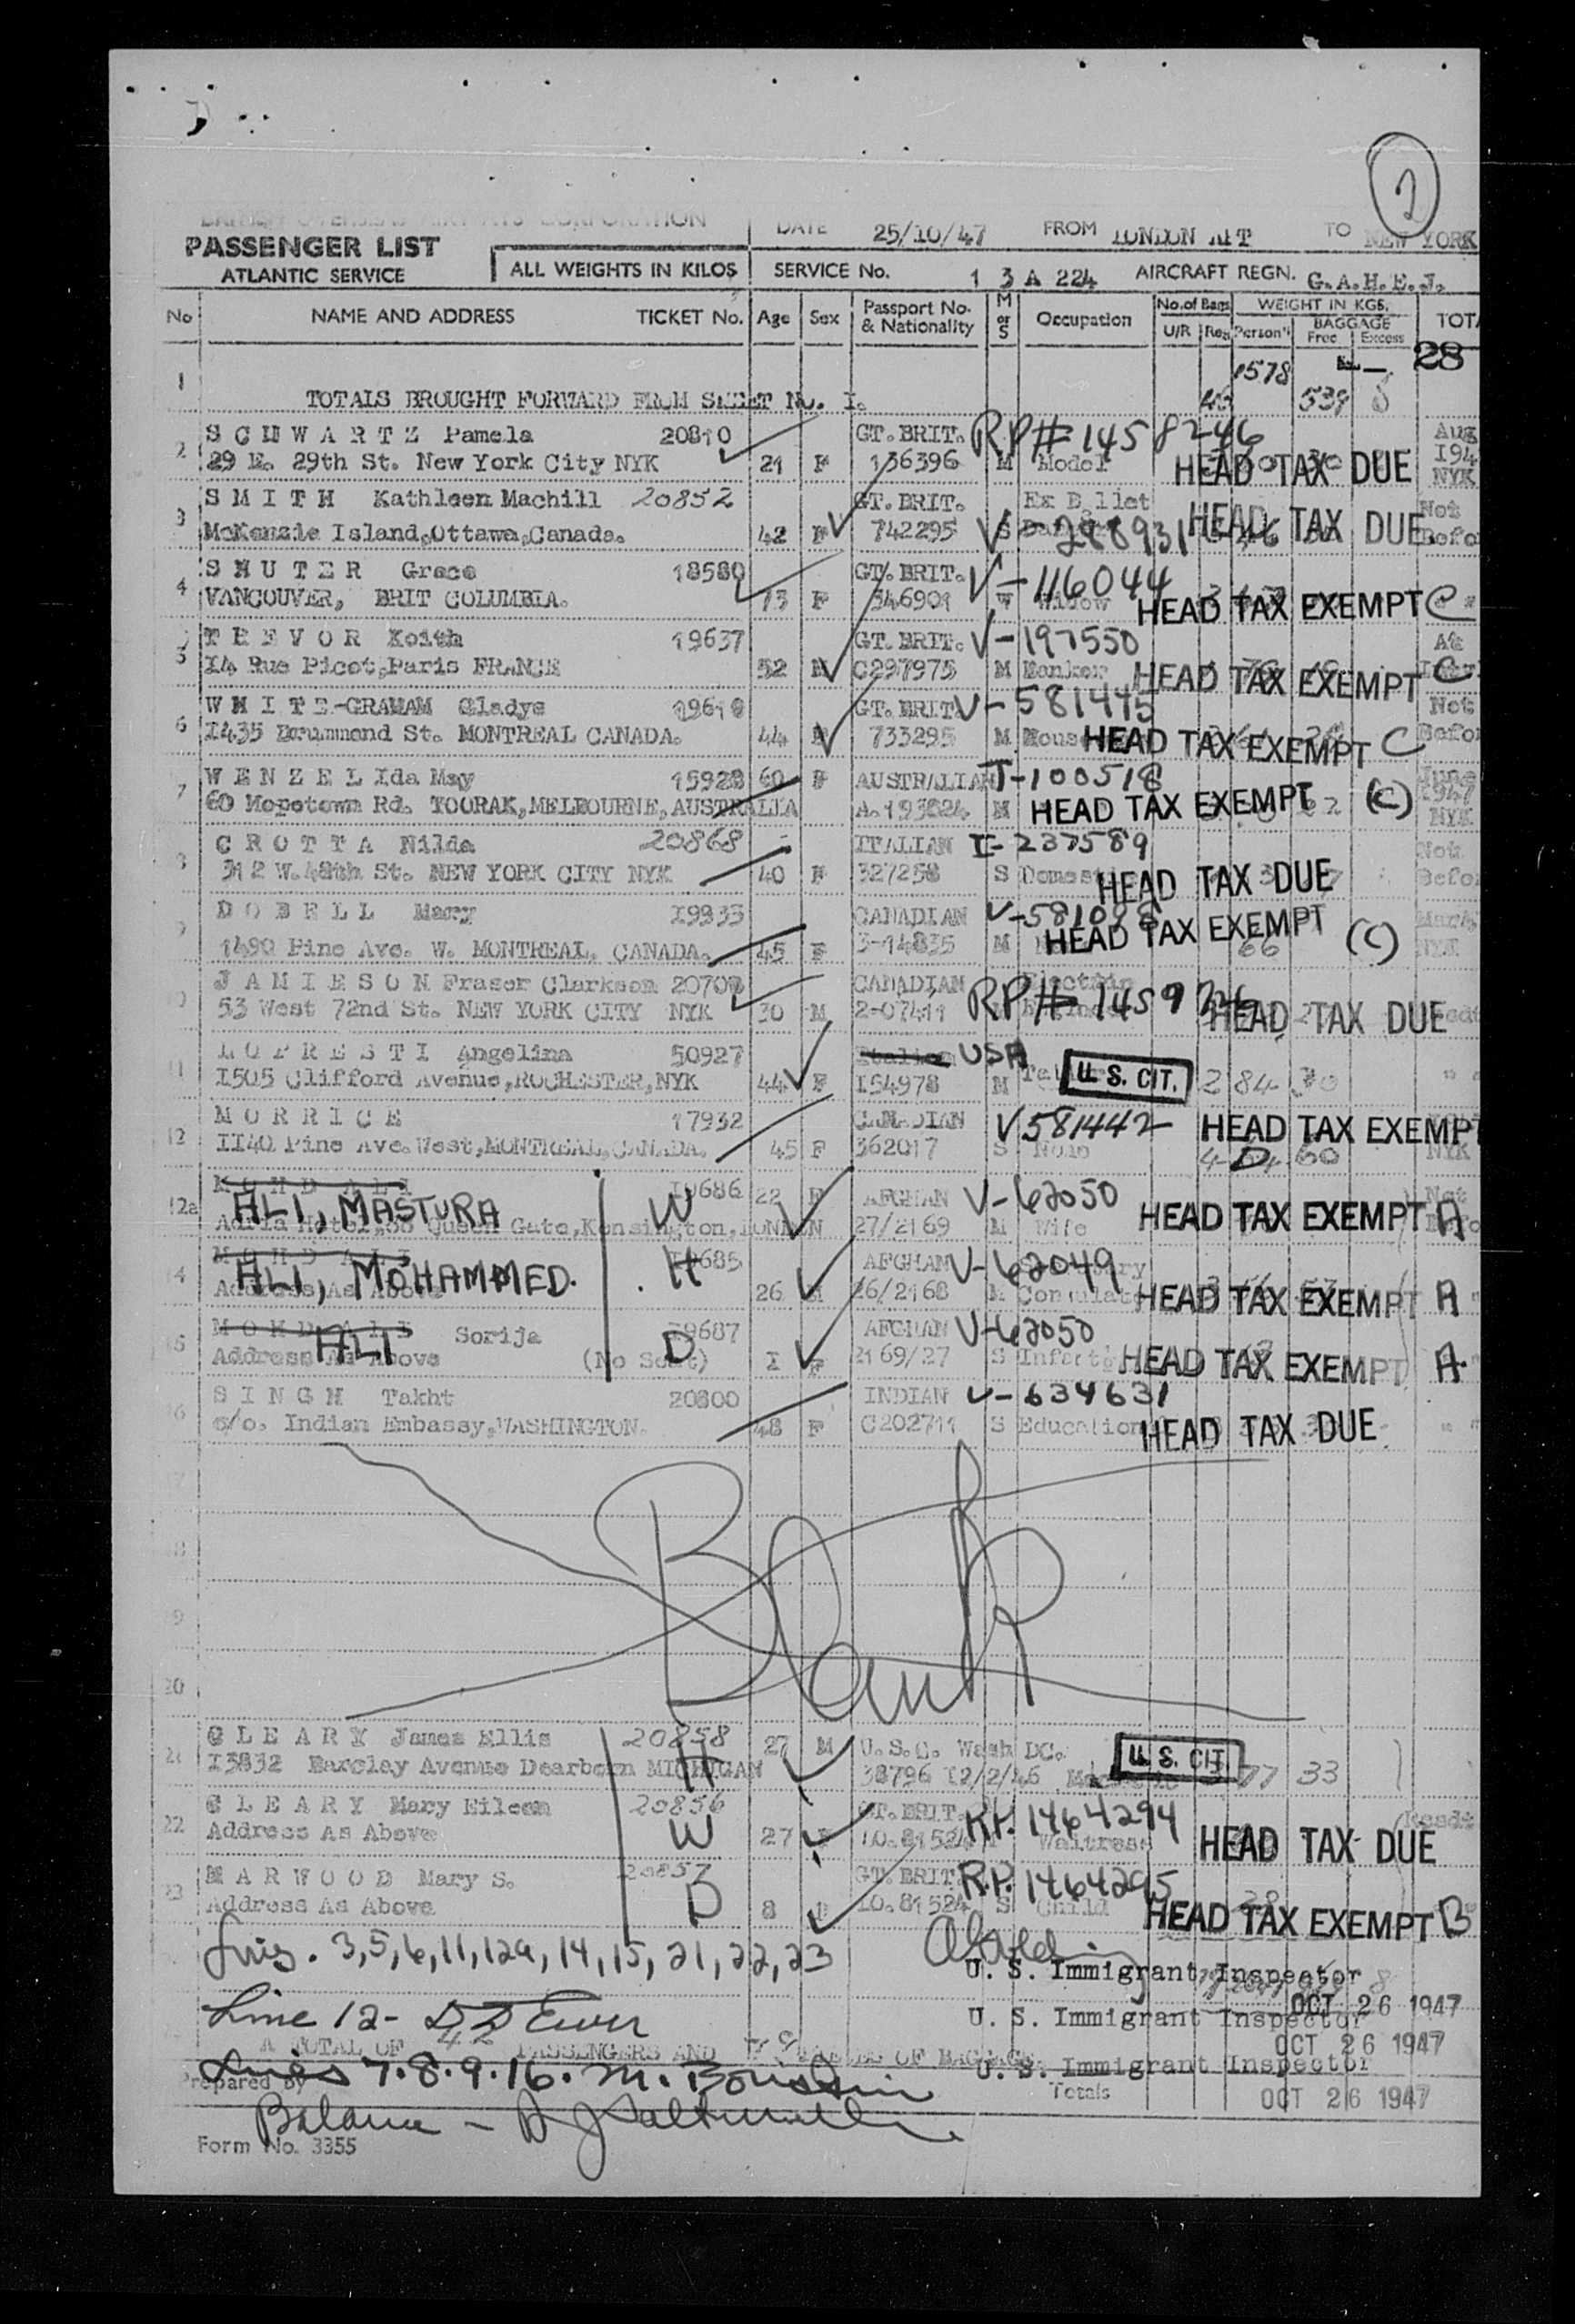 2
PASSENGER LIST
ATLANTIC SERVICE
ALL WEIGHTS IN KILOS
DATE 25/10/47 FROM LONDON APT TO NEW YORK
SERVICE No. 1 3 A 224 AIRCRAFT REGN. G.A.H.E.J.
No NAME AND ADDRESS TICKET No. Age Sex Passport No. & Nationality M or S Occupation No. of Bags U/R Reg WEIGHT IN KGS. Person'l BAGGAGE Free Excess
28
1578
1 TOTALS BROUGHT FORWARD FROM SHEET No. I. 539 8
SCHWARTZ Pamela 20810 GT. BRIT. RP# 1458246 Aug
2 29 E. 29th St. New York City NYK 21 F 136396 M Model HEAD TAX DUE 194 NYK
SMITH Kathleen Machill 20852 GT. BRIT. Not
3 McKenzie Island,Ottawa,Canada. 42 F 742295 S V-298931 HEAD TAX DUE Befo
SHUTER Grace 18580 GT. BRIT. V-116044
4 VANCOUVER, BRIT COLUMBIA. 73 F 346901 W Widow HEAD TAX EXEMPT C
TREVOR Keith 19637 GT. BRIT. V-197550
5 14 Rue Picot,Paris FRANCE 52 M C297975 M Banker HEAD TAX EXEMPT C
WHITE-GRAHAM Gladys 19610 GT. BRIT. V-581445 Not
6 1435 Drummond St. MONTREAL CANADA. 44 733295 M HEAD TAX EXEMPT C Befo
WENZEL Ida May 15928 60 F AUSTRALIAN T-100518 June
7 60 Hopetown Rd. TOORAK,MELBOURNE,AUSTRALIA A.193824 M HEAD TAX EXEMPT (C) 1947 NYK
CROTTA Nilda 20868 ITALIAN I-237589 Not
8 312 W. 48th St. NEW YORK CITY NYK 40 F 327258 S HEAD TAX DUE Befo
DOBELL Mary 19935 CANADIAN V-581098
9 1490 Pine Ave. W. MONTREAL, CANADA. 45 F 3-14835 M HEAD TAX EXEMPT 66 (C) NYK
JAMIESON Fraser Clarkson 20707 CANADIAN
10 53 West 72nd St. NEW YORK CITY NYK 30 M 2-07411 RP# HEAD TAX DUE
LOPRESTI Angelina 50927 Italian USA
11 1505 Clifford Avenue,ROCHESTER,NYK 44 F 154978 M U.S. CIT. 2 84 30
MORRICE 17932 CANADIAN V581442 HEAD TAX EXEMPT
12 1140 Pine Ave.West,MONTREAL,CANADA. 45 F 362017 S None NYK
MOHD ALI 19686 22 F AFGHAN V-62050 Not
12a ALI, MASTURA W
Adria Hotel,88 Queen Gate,Kensington,LONDON 27/2169 M Wife HEAD TAX EXEMPT A
MOHD ALI 19685 AFGHAN V-62049
14 ALI, MOHAMMED. H
Address As Above 26 M 26/2168 M HEAD TAX EXEMPT A
MOHD ALI Sorija 19687 AFGHAN V-62050
15 ALI D
Address As Above (No Seat) I F 2169/27 S Infant HEAD TAX EXEMPT A.
SINGH Takht 20800 INDIAN V-634631
16 c/o. Indian Embassy,WASHINGTON. 48 F C202711 S Education HEAD TAX DUE
17
18
Blank
19
20
CLEARY James Ellis 20858 27 M U.S.C. Wash DC.
21 13832 Barcley Avenue Dearborn MICHIGAN H 38796 12/2/46 U.S. CIT. 77 33
CLEARY Mary Eileen 20856 GT. BRIT. RP. 1464294
22 Address As Above W 27 10.81524 Waitress HEAD TAX DUE
MARWOOD Mary S. 20857 GT. BRIT R.P. 1464295
23 Address As Above D 8 10.81524 S Child HEAD TAX EXEMPT B
Lns. 3,5,6,11,12a,14,15,21,22,23
U. S. Immigrant Inspector
OCT 26 1947
Line 12-
U. S. Immigrant Inspector
OCT 26 1947
A TOTAL OF 42 PASSENGERS AND PIECES OF BAGGAGE
Lines 7.8.9.16. M.
U. S. Immigrant Inspector
Prepared By Totals OCT 26 1947
Balance -
Form No. 3355